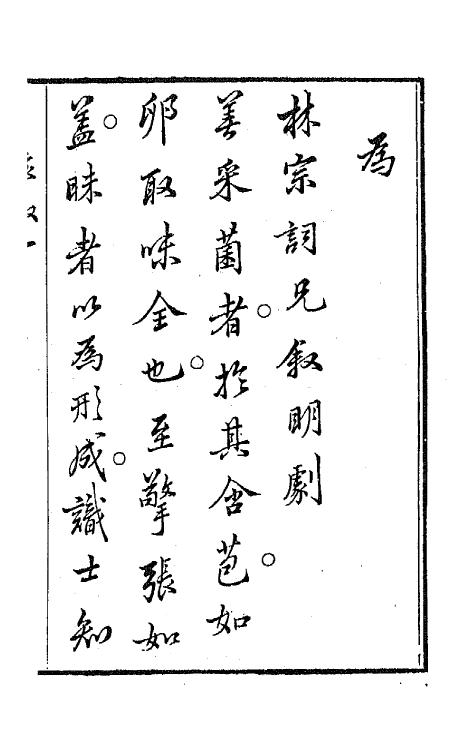 為
林宗詞兄叙明劇
善采菌者○於其含苞○如
卵取味全也○至擎張如
蓋○昧者以為形成○識士知